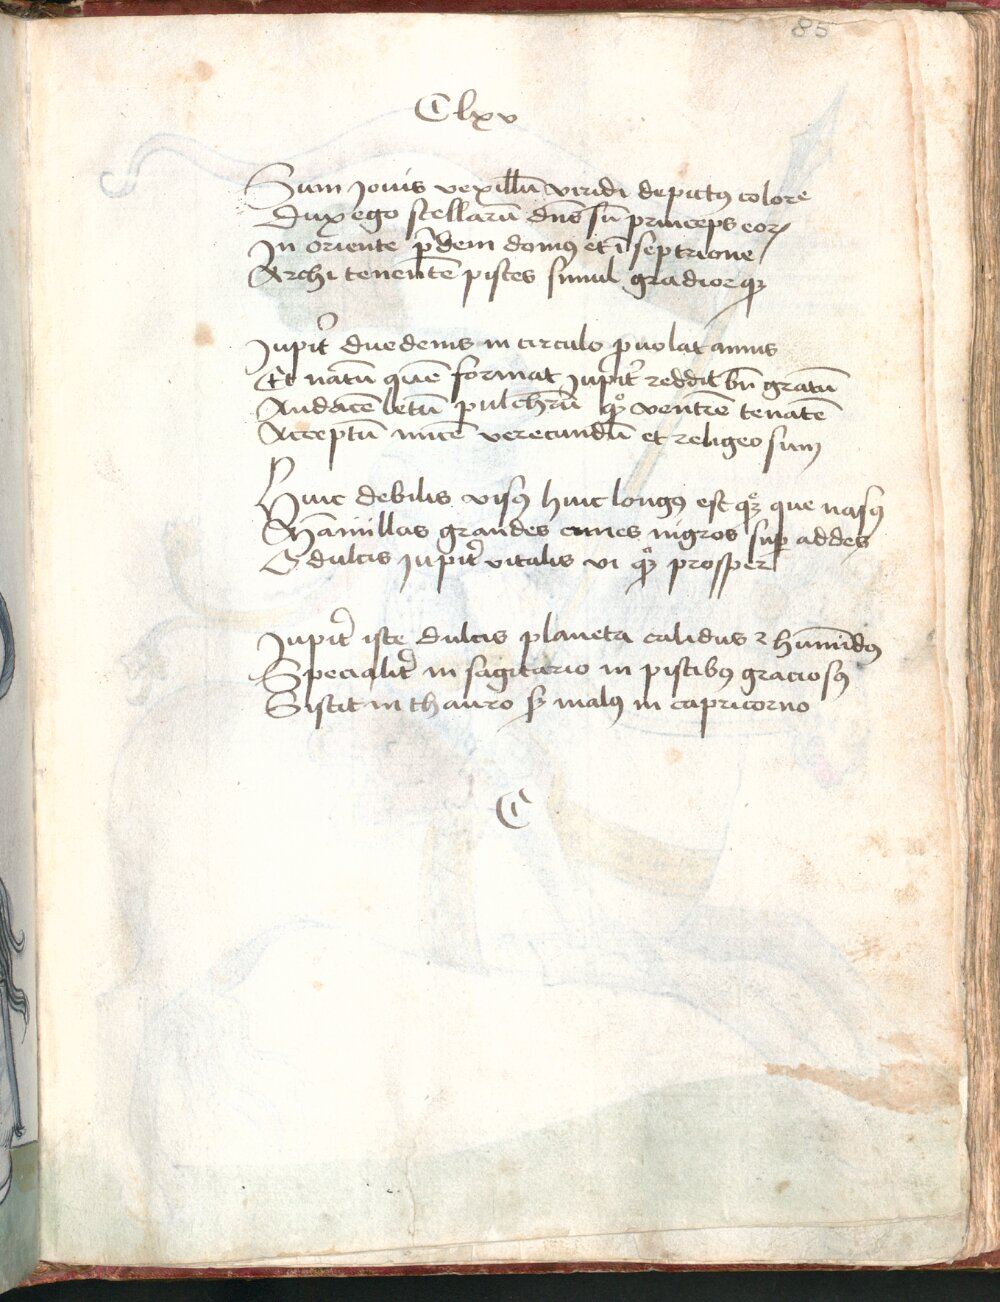 85
Clxv
Sum Jovis vexillū viridi depictꝰ colore
Dux ego stellarū dn̄s sū princeps eoꝝ
In oriente p̄dem domꝰ et ī septrione
Archi tenentē pistes simul gradior qꝫ
Jupit̉ duedenis in circulo ꝑuolat annis
Et natū quē format Jupit̉ reddit bn̄ gratū
Audacē letū pulchrū qꝫ ventrē tenatē
Acceptū mitē verecundū et religeosum
Huic debilis visꝰ huic longꝰ est qꝫ que nasꝰ
Mamillas grandes nigros suꝑ addes
S dulcis Jupit̉ vitalis vi qꝫ prosper
Jupit̉ iste dulcis planeta calidus ⁊ humidꝰ
Specialit̉ in sagitario in pistibꝰ graciosꝰ
Sistit in thauro sꝫ malꝰ in capricorno
C